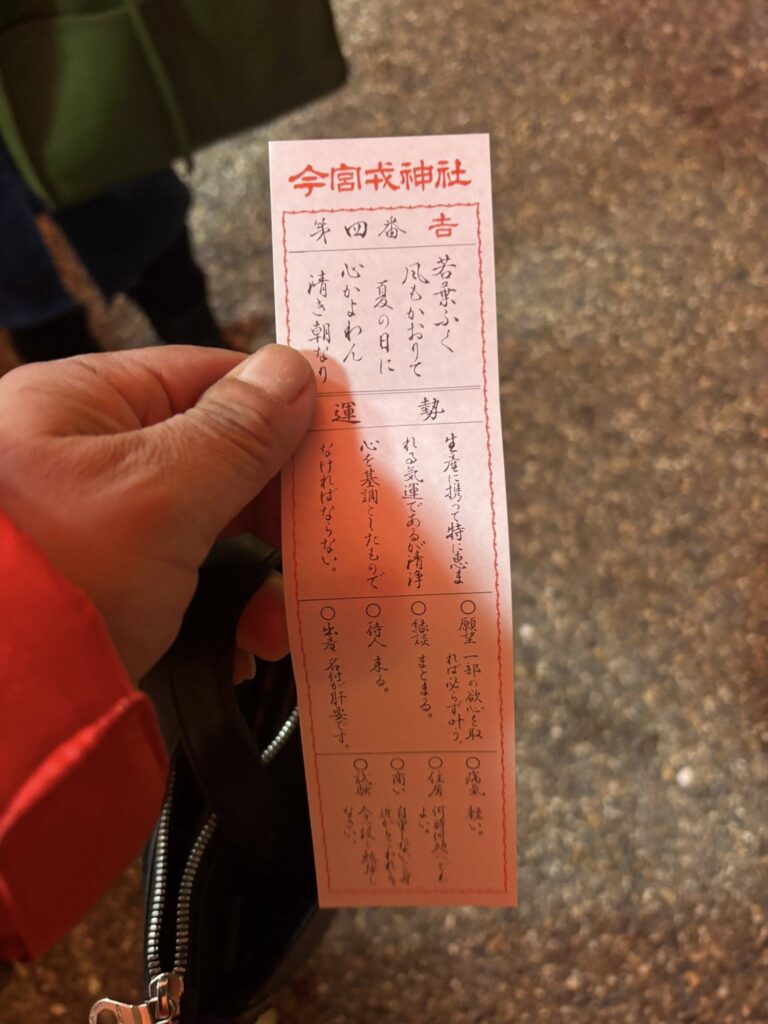 今宮戎神社
第四番 吉
若葉ふく
風もかおりて
夏の日に
心かよわん
清き朝なり
運勢
生産に携って特に恵ま
れる気運であるが清浄
心を基調としたもので
なければならない。
○願望 一部の欲心を取
れば必らず叶う。
○縁談 まとまる。
○待人 来る。
○出産 名付が肝要です。
○病気 軽い。
○住居 何時何処でも
よい。
○商い 自重しないと身
○試験 今一段と勉強し
なさい。